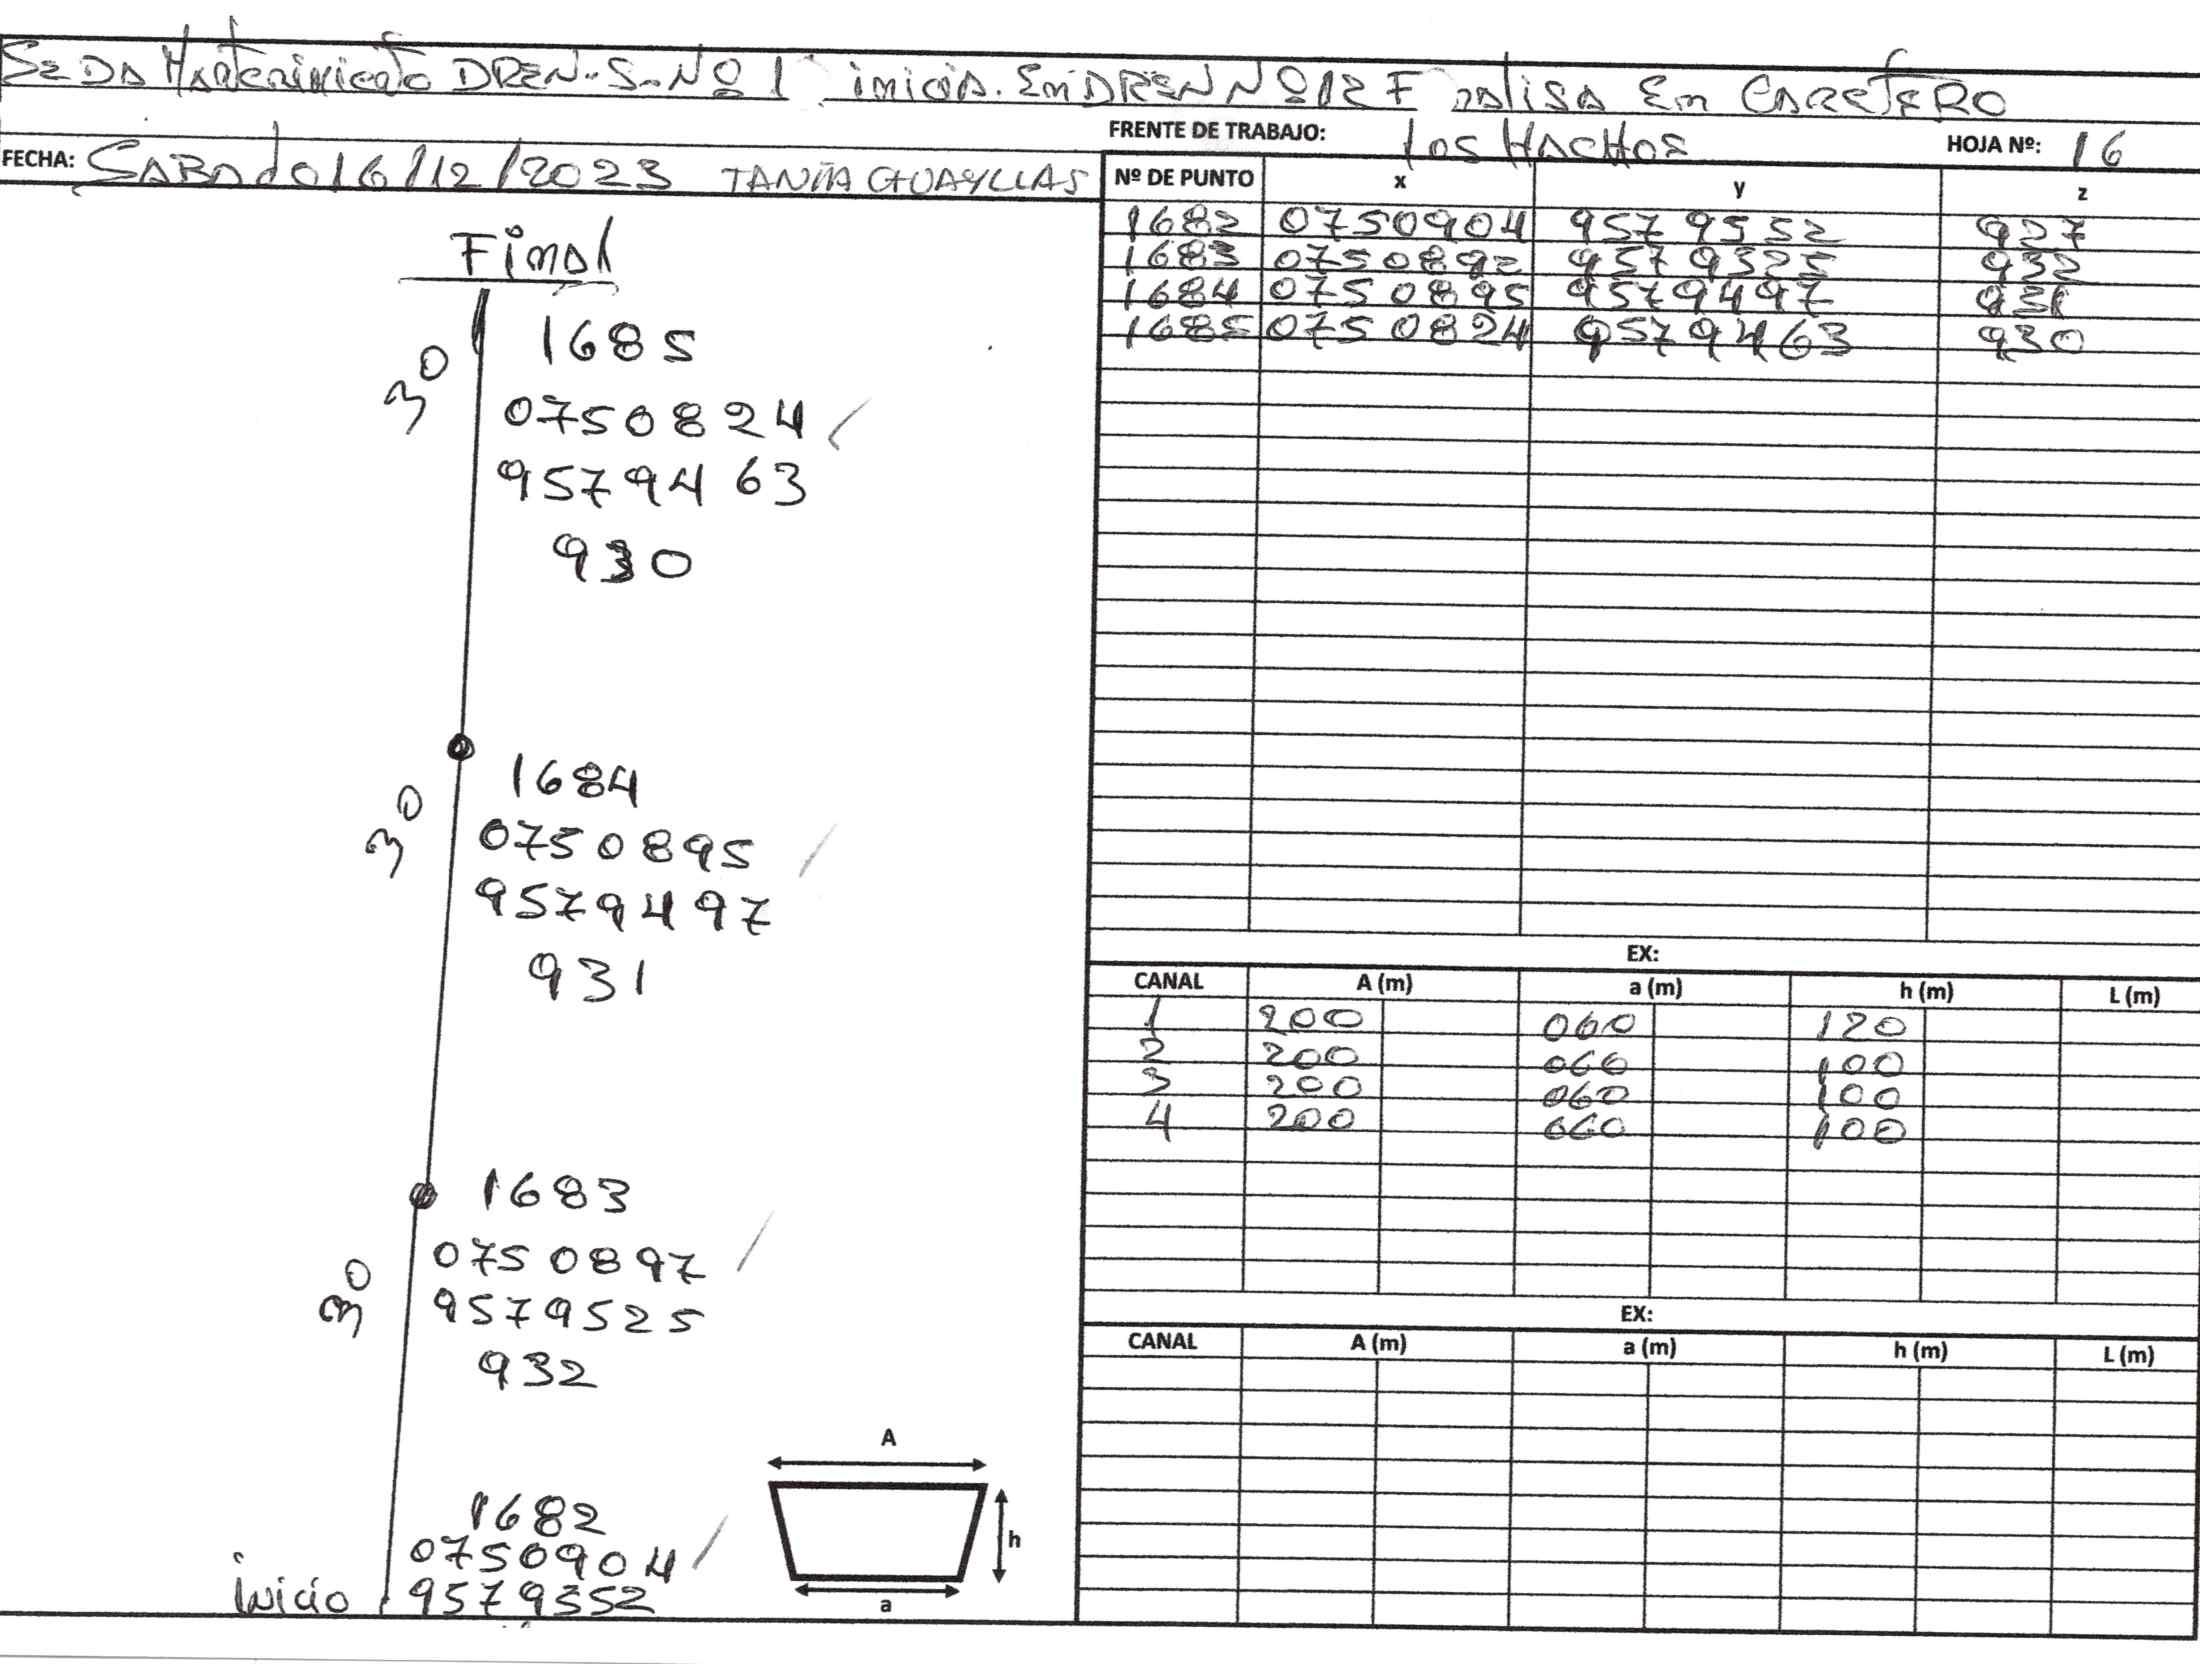 SE DA Mantenimiento DREN-S-Nº 1 inicia. En DREN Nº 12 Finalisa En CARETERO
FRENTE DE TRABAJO: los HACHOS HOJA Nº: 16
FECHA: SABADO 16/12/2023 TANIA GUAYLLAS
Nº DE PUNTO x y z
1682 0750904 9579552 927
1683 0750892 9579325 932
1684 0750895 9579497 931
1685 0750824 9579463 930
Final
1685
30
0750824
9579463
930
1684
30
0750895
9579497
931
1683
0750897
30
9579525
932
1682
0750904
inicio 9579552
A
h
a
EX:
CANAL A (m) a (m) h (m) L (m)
1 200 060 120
2 200 060 100
3 200 060 100
4 200 060 100
EX:
CANAL A (m) a (m) h (m) L (m)